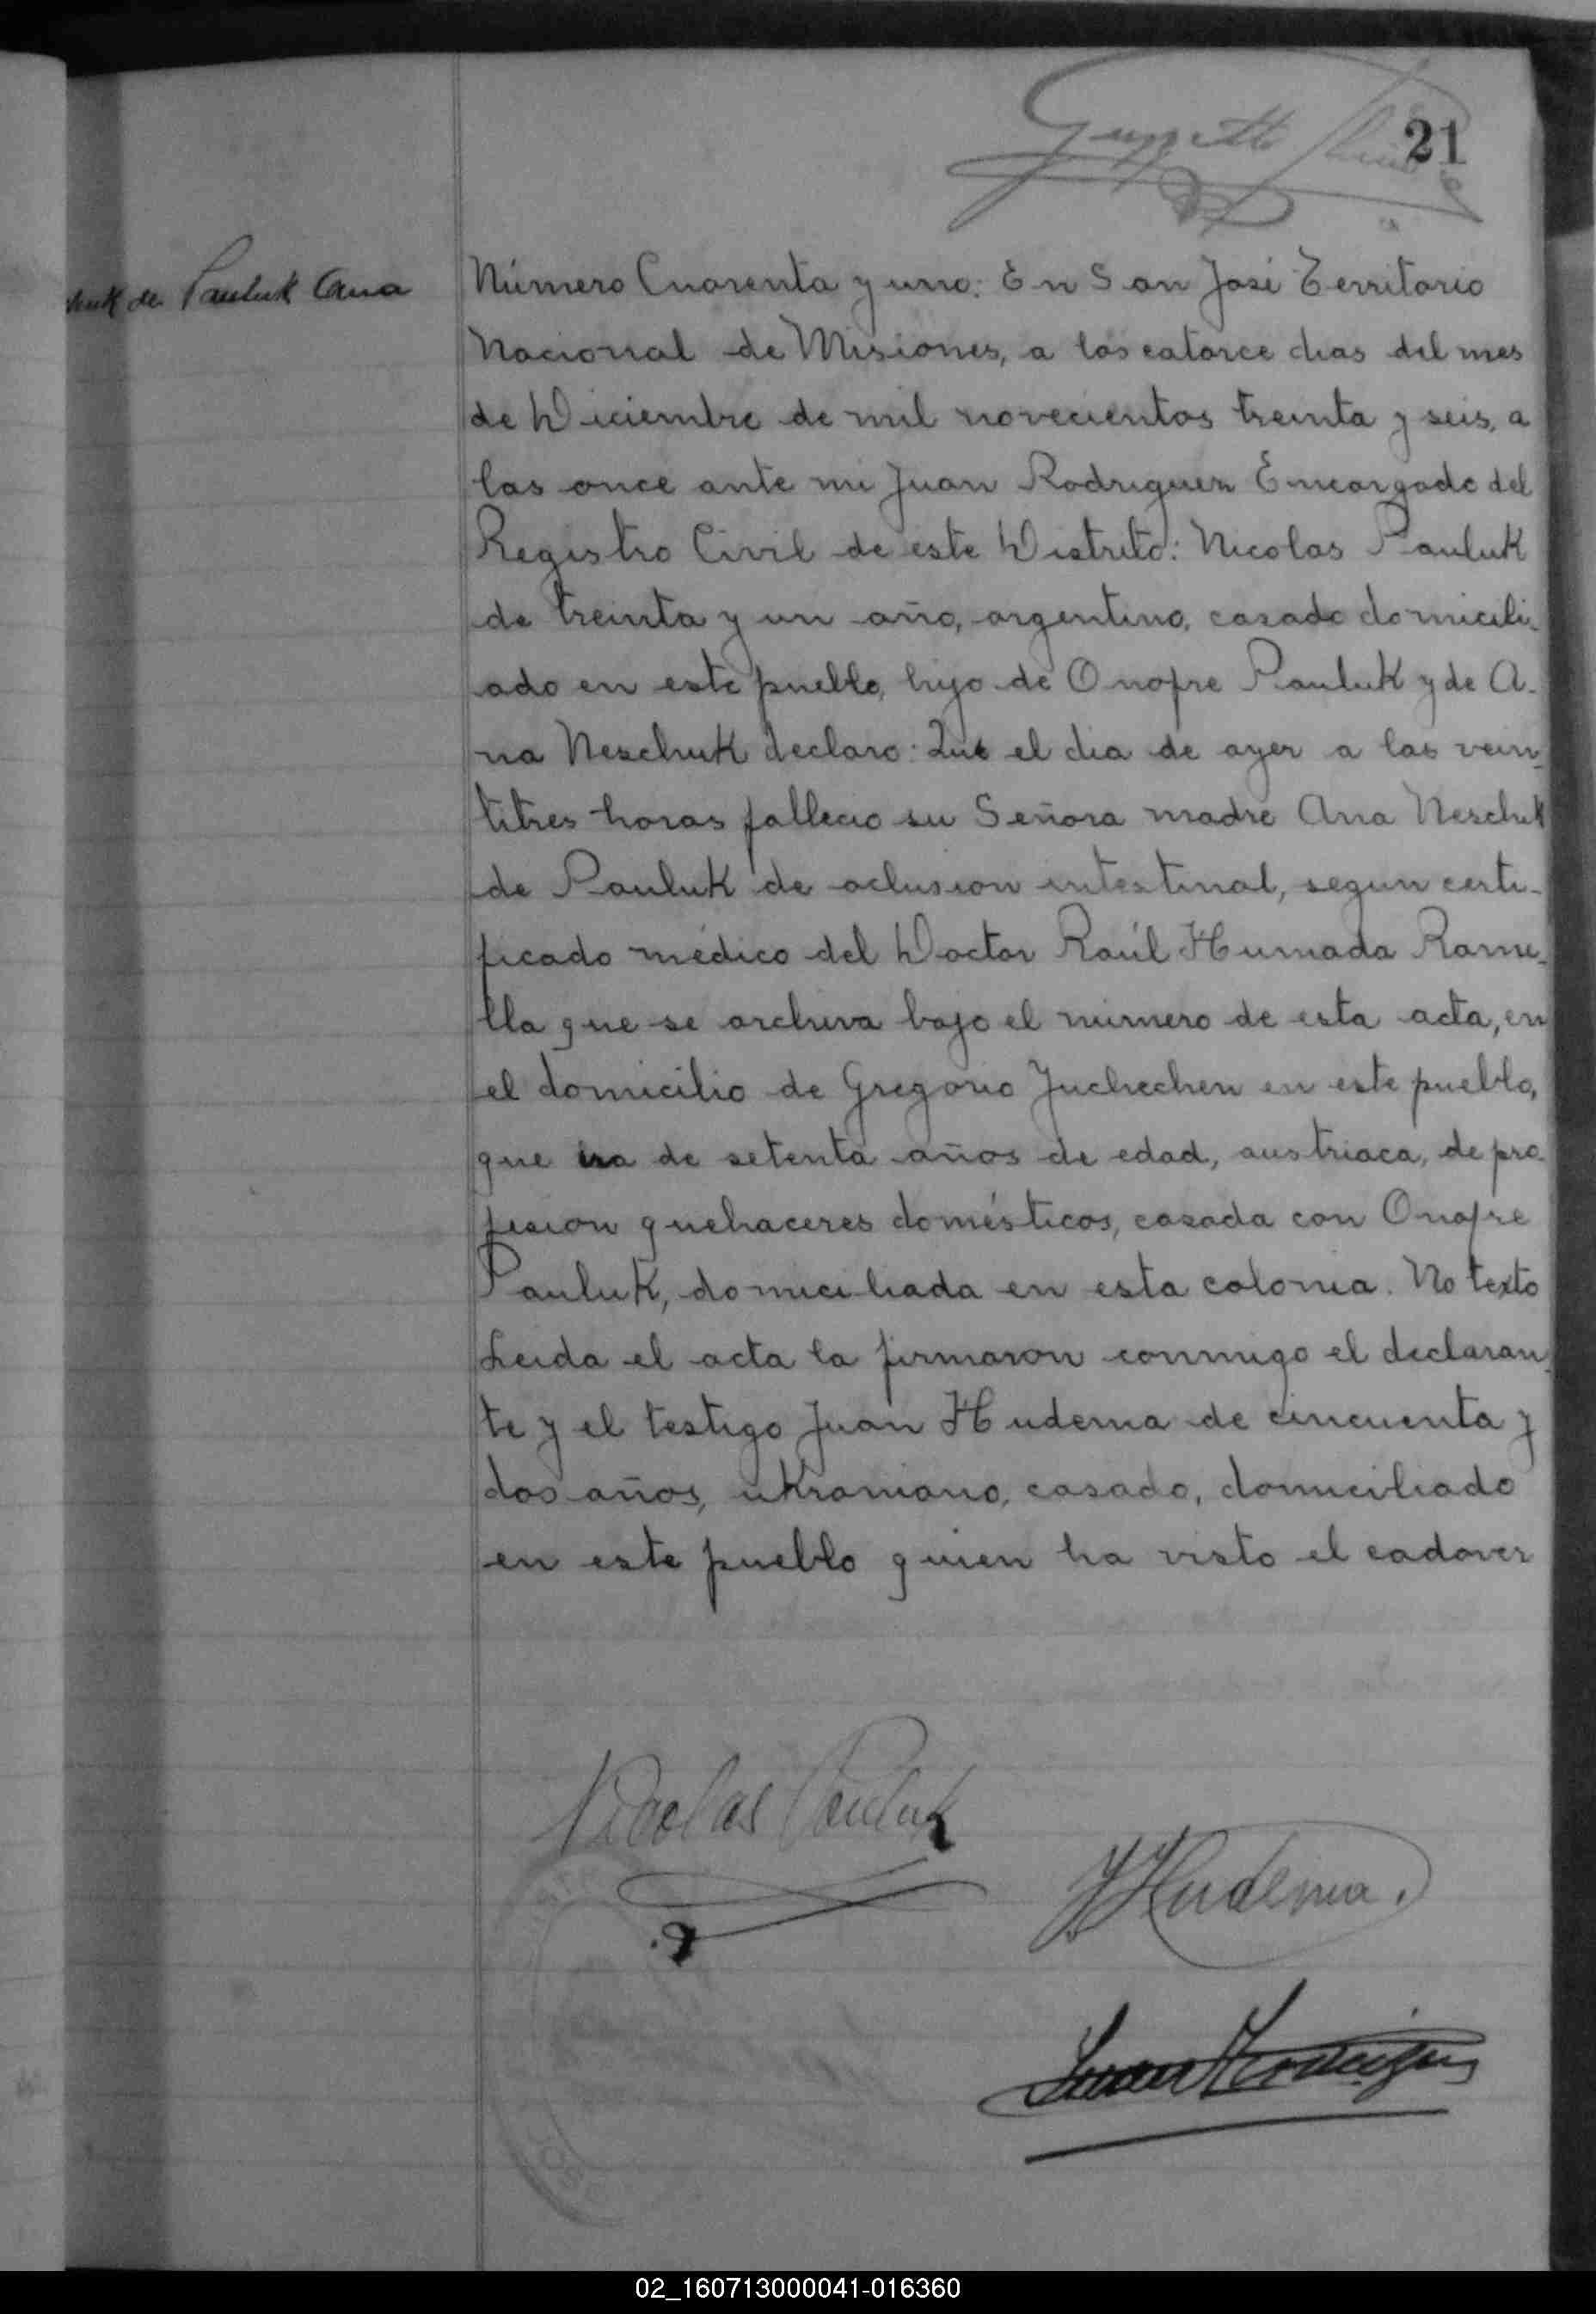 21
chuk de Pauluk Ana
Número Cuarenta y uno: En San José Territorio
Nacional de Misiones, a los catorce dias del mes
de Diciembre de mil novecientos treinta y seis, a
las once ante mi Juan Rodriguez Encargado del
Registro Civil de este Distrito: Nicolas Pauluk
de treinta y un año, argentino, casado domicili-
ado en este pueblo, hijo de Onofre Pauluk y de A-
na Neschuk declaro: Que el dia de ayer a las vein-
titres horas fallecio su Señora madre Ana Neschuk
de Pauluk de oclusion intestinal, segun certi-
ficado médico del Doctor Raúl Humada Rame-
lla que se archiva bajo el numero de esta acta, en
el domicilio de Gregorio Juchechen en este pueblo,
que era de setenta años de edad, austriaca, de pro-
fesion quehaceres domésticos, casada con Onofre
Pauluk, domiciliada en esta colonia. No texto
Leida el acta la firmaron conmigo el declaran-
te y el testigo Juan Hudema de cincuenta y
dos años, ukraniano, casado, domiciliado
en este pueblo quien ha visto el cadaver
Nicolas Pauluk
J Hudema.
Juan Rodriguez
02_160713000041-016360